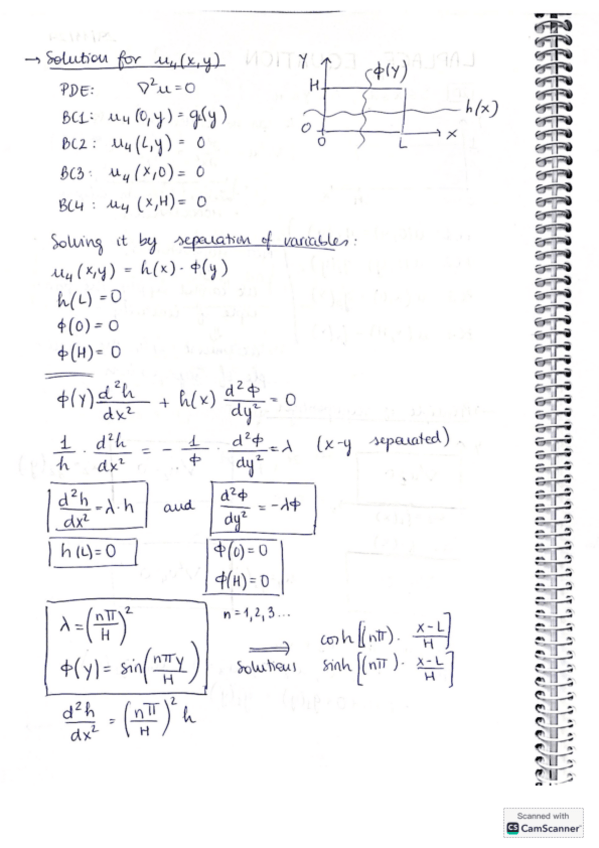 → Solution for u₄(x,y)
PDE: ∇²u=0
BC1: u₄(0,y) = g(y)
BC2: u₄(L,y) = 0
BC3: u₄(x,0) = 0
BC4: u₄(x,H) = 0
Y
ϕ(Y)
H
h(x)
0
0
L
x
Solving it by separation of variables:
u₄(x,y) = h(x)·ϕ(y)
h(L) = 0
ϕ(0) = 0
ϕ(H) = 0
ϕ(Y) d²h/dx² + h(x) d²ϕ/dy² = 0
1/h · d²h/dx² = - 1/ϕ · d²ϕ/dy² = λ (x-y separated)
d²h/dx² = λ·h and d²ϕ/dy² = -λϕ
h(L)=0 ϕ(0)=0
ϕ(H)=0
λ = (nπ/H)² n=1,2,3...
ϕ(Y) = sin(nπy/H) ⟹ solutions cosh[(nπ)· x-L/H]
sinh[(nπ)· x-L/H]
d²h/dx² = (nπ/H)² h
Scanned with
CS CamScanner